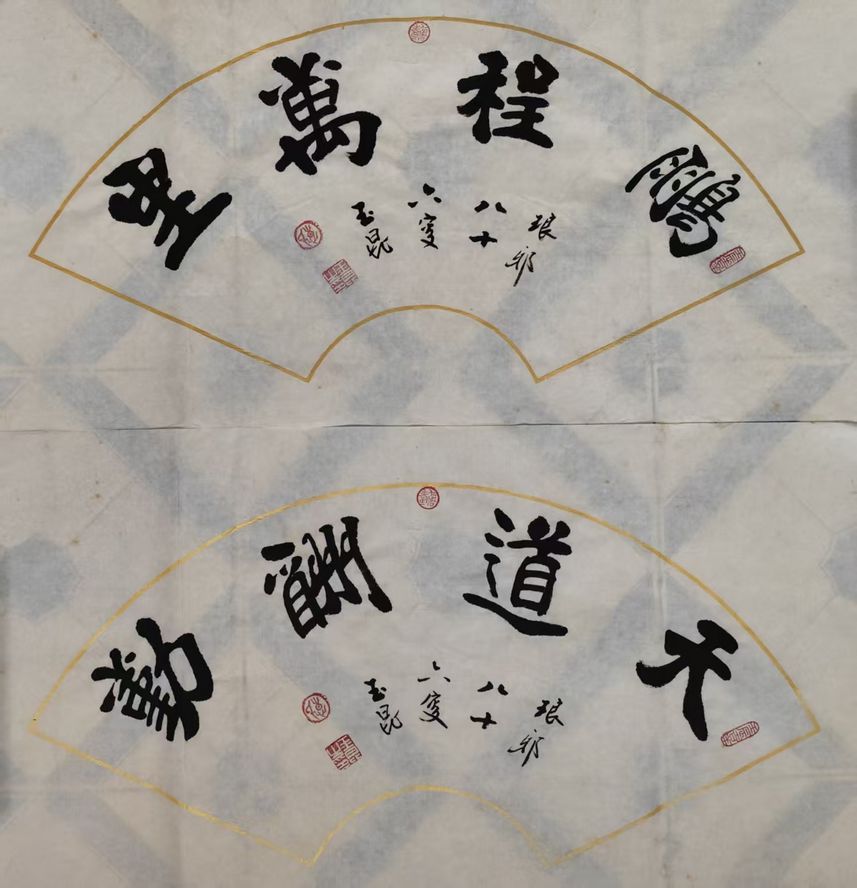 鵬程萬里
琅邪
八十
六叟
玉昆
天道酬勤
琅邪
八十
六叟
玉昆